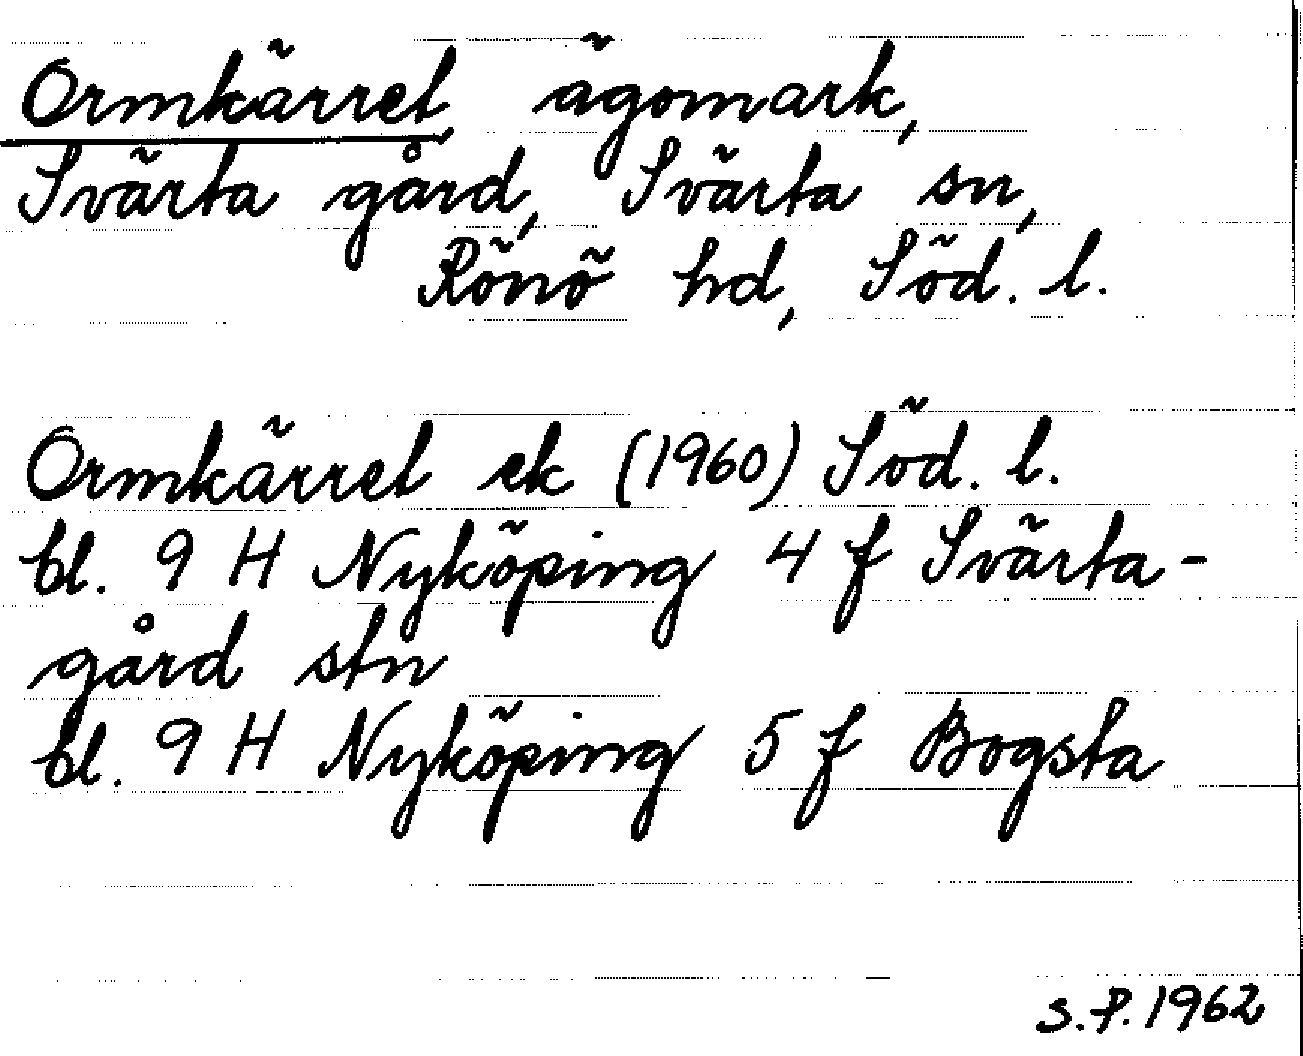 Ormkärret, ägomark,
Svärta gård, Svärta sn,
Rönö hd, Söd. l.
Ormkärret ek (1960) Söd. l.
bl. 9 H Nyköping 4 f Svärta-
gård stn
bl. 9 H Nyköping 5 f Bogsta
S.P. 1962